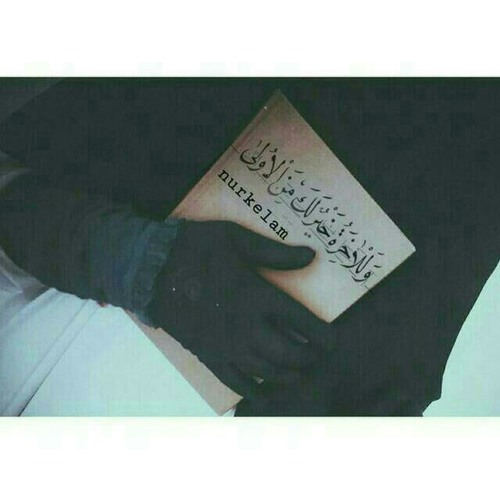 وَلَلْآخِرَةُ خَيْرٌ لَكَ مِنَ الْأُولَىٰ
nurkelam